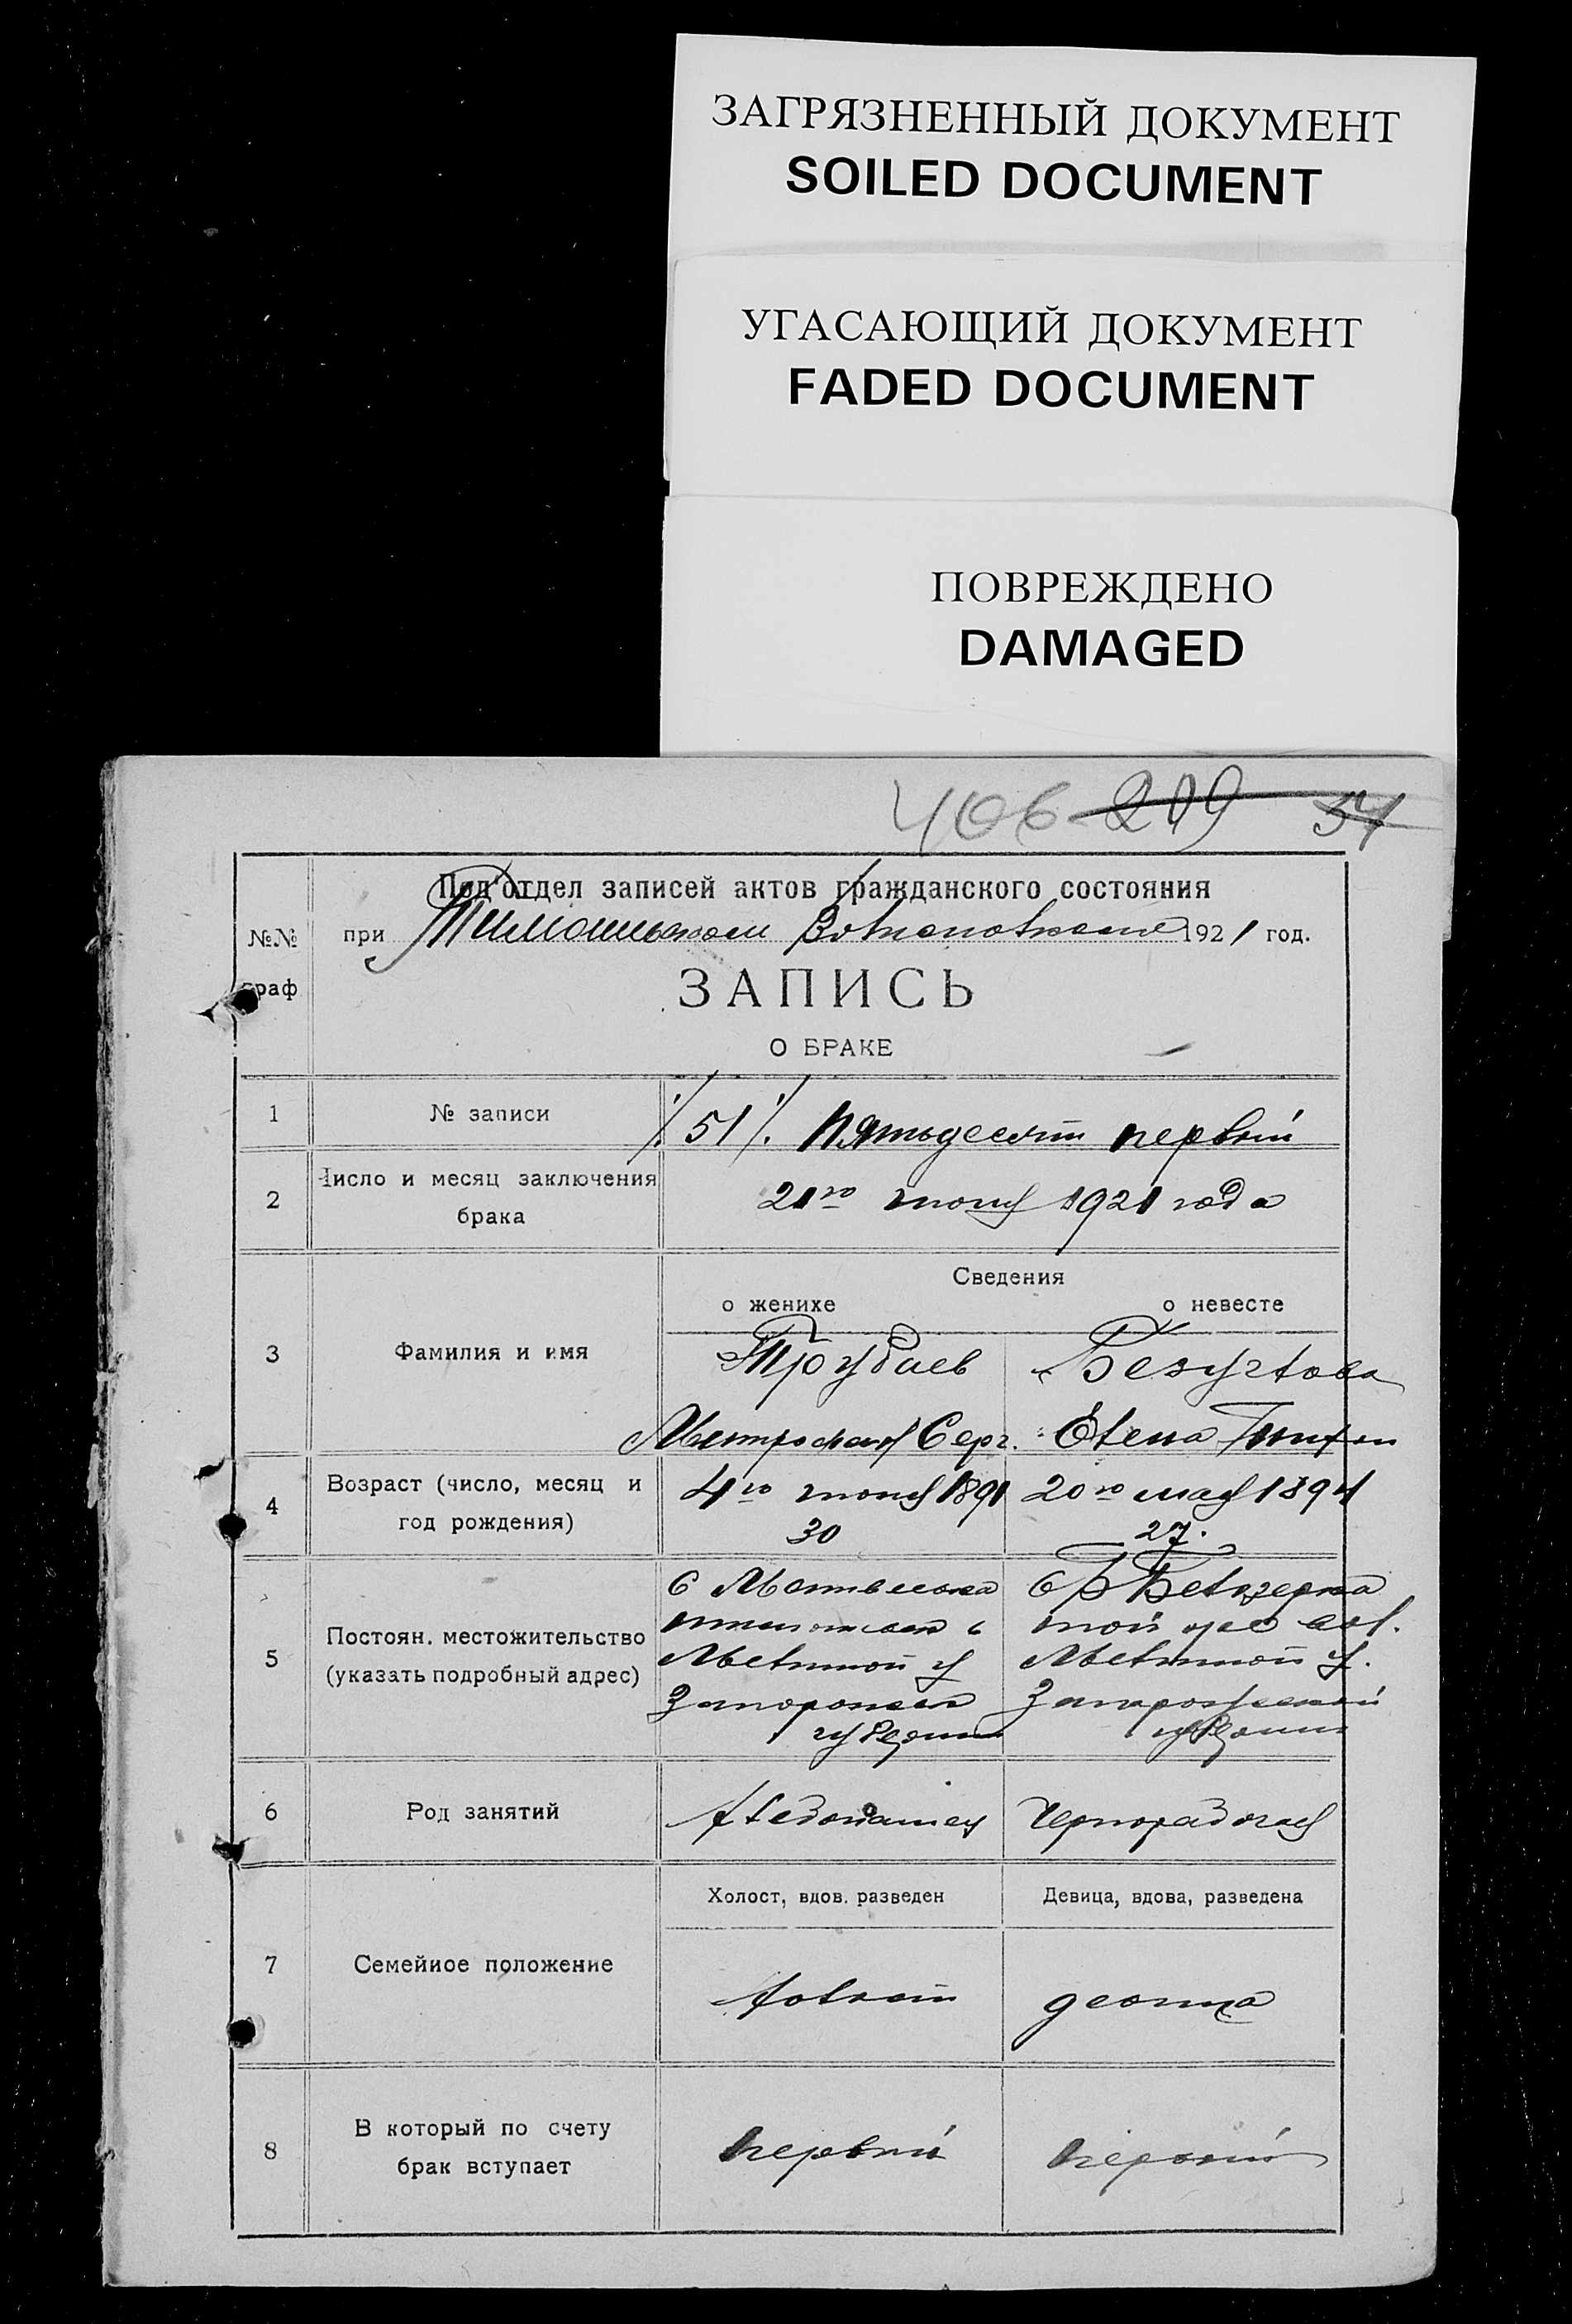 ЗАГРЯЗНЕННЫЙ ДОКУМЕНТ
SOILED DOCUMENT
УГАСАЮЩИЙ ДОКУМЕНТ
FADED DOCUMENT
ПОВРЕЖДЕНО
DAMAGED
406 209 54
Под'отдел записей актов гражданского состояния
№№ при 1921 год.
граф
ЗАПИСЬ
О БРАКЕ
1 № записи 51 Пятьдесят первый
2 Число и месяц заключения
брака
21го 1921 года
Сведения
о женихе о невесте
3 Фамилия и имя
Трубаев
Митрофан Серг. Елена
4 Возраст (число, месяц и
год рождения)
4го 1891 20го мая 1894
30 27.
5 Постоян. местожительство
(указать подробный адрес)
С С
Запорожск Запорожской
губернии губернии
6 Род занятий Хлебопашец Чернорабочая
Холост, вдов. разведен Девица, вдова, разведена
7 Семейное положение
холост девица
8 В который по счету
брак вступает
первый первый